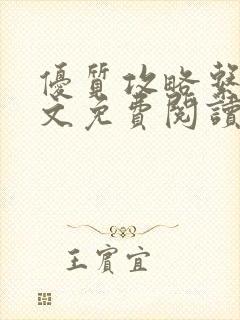 優質攻略繫
文免費閱讀
王賓宜